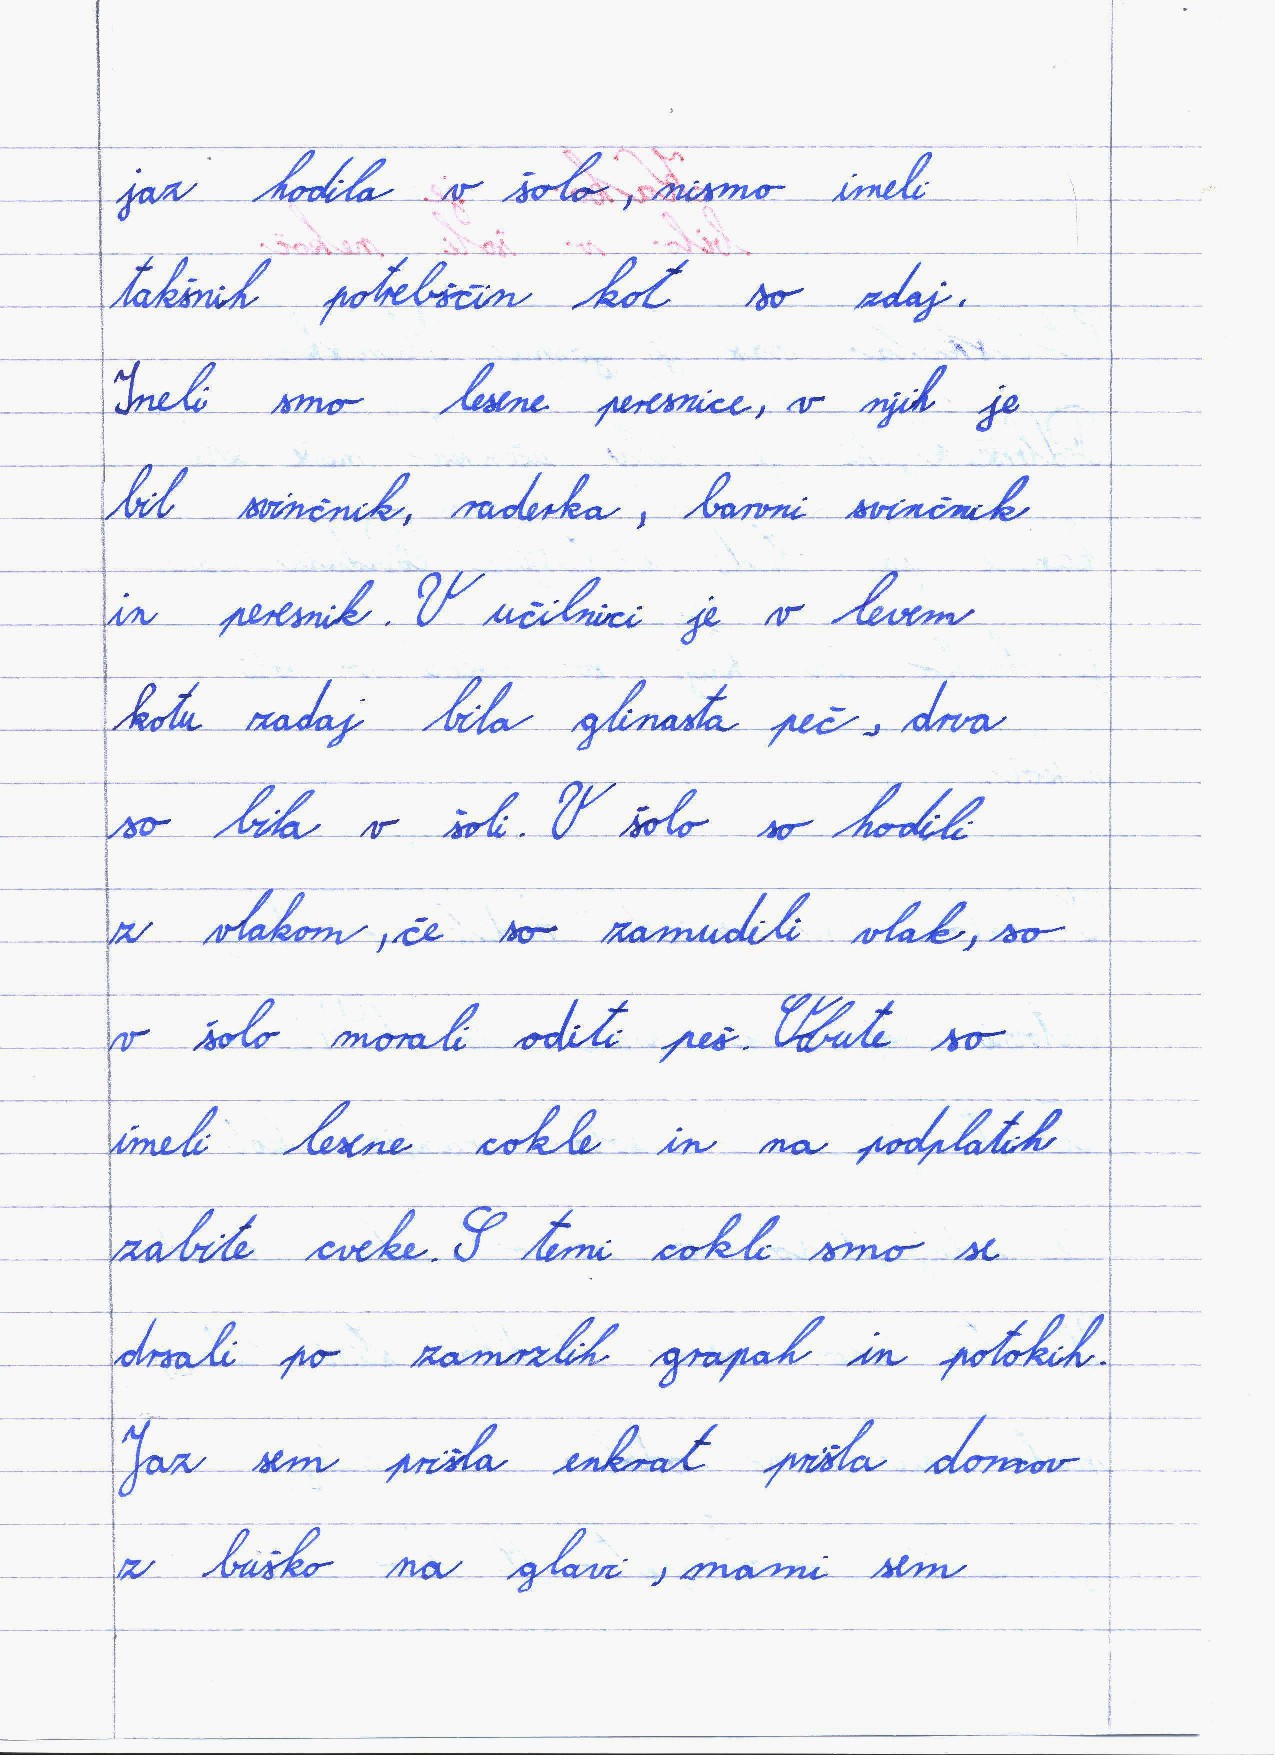 jaz hodila v šolo, nismo imeli
takšnih potrebščin kot so zdaj.
Imeli smo lesene peresnice, v njih je
bil svinčnik, raderka, barvni svinčnik
in peresnik. V učilnici je v levem
kotu zadaj bila glinasta peč, drva
so bila v šoli. V šolo so hodili
z vlakom, če so zamudili vlak, so
v šolo morali oditi peš. Obute so
imeli lesene cokle in na podplatih
zabite cveke. S temi cokli smo se
drsali po zamrzlih grapah in potokih.
Jaz sem prišla enkrat prišla domov
z buško na glavi, mami sem